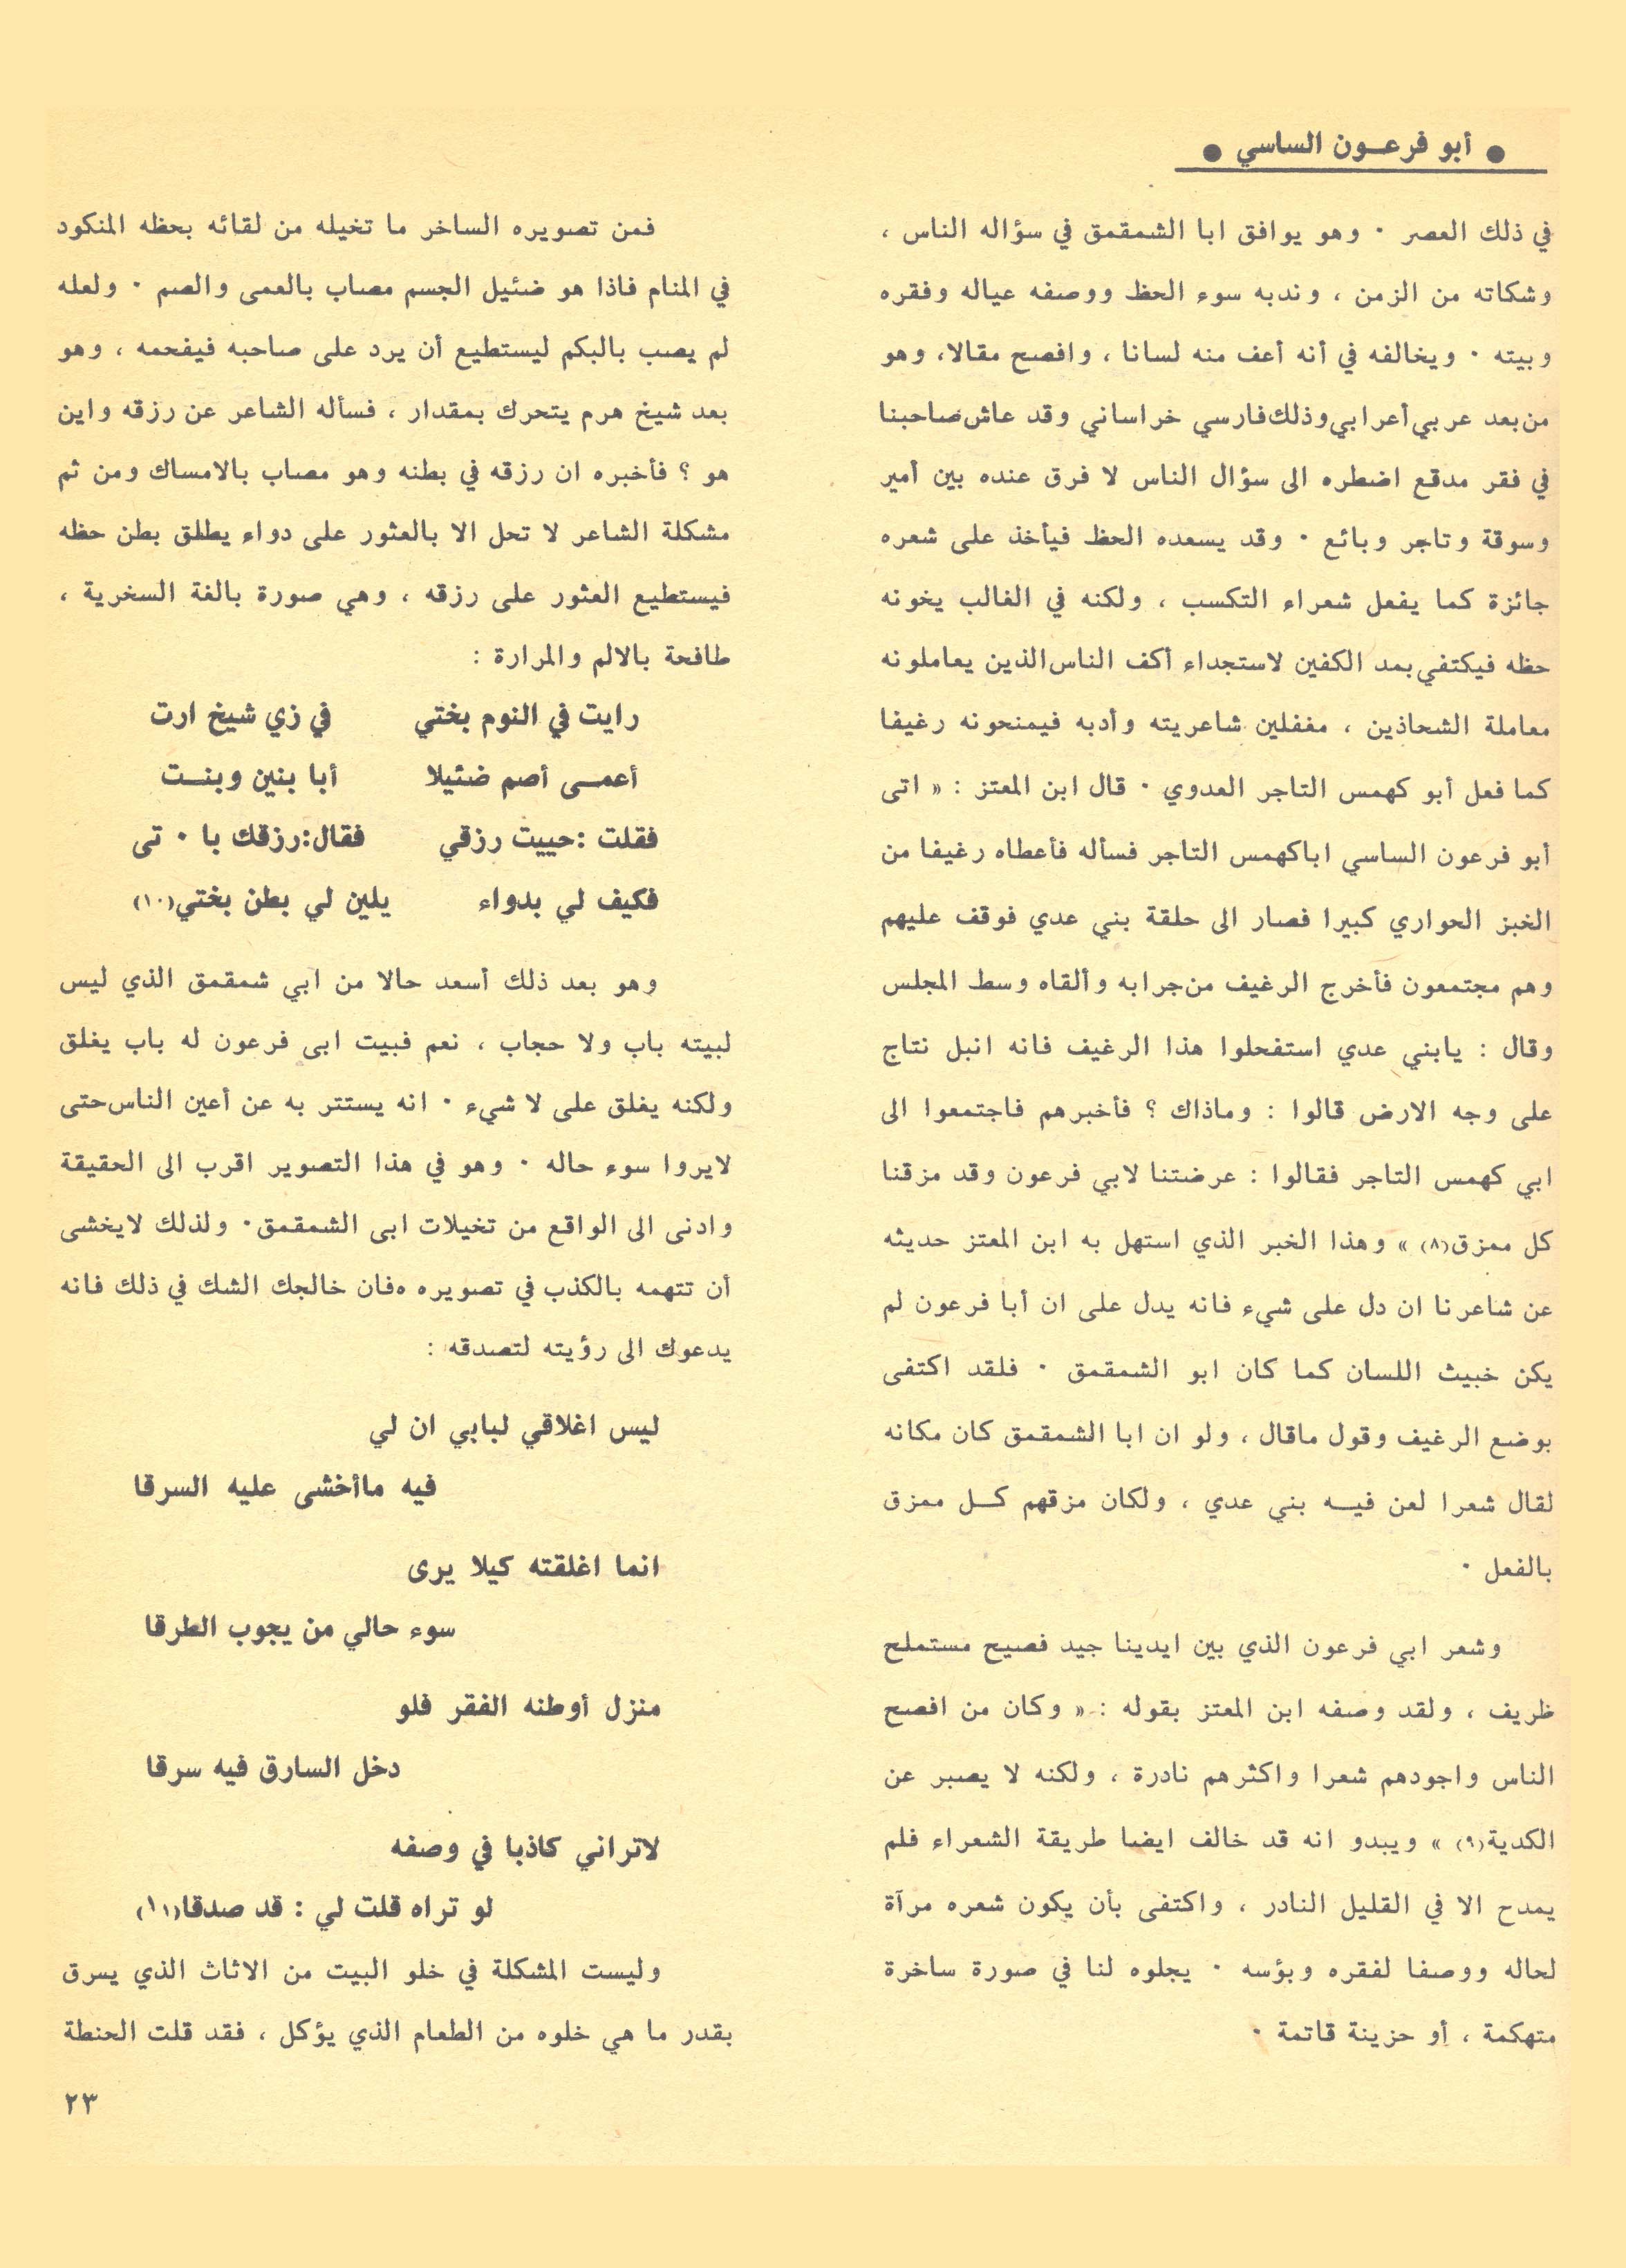 ● أبو فرعـون الساسي ●
في ذلك العصر ٠ وهو يوافق ابا الشمقمق في سؤاله الناس ،
وشكاته من الزمن ، وندبه سوء الحظ ووصفه عياله وفقره
وبيته ٠ ويخالفه في أنه أعف منه لسانا ، وافصح مقالا، وهو
من بعد عربي أعرابي وذلك فارسي خراساني وقد عاش صاحبنا
في فقر مدقع اضطره الى سؤال الناس لا فرق عنده بين أمير
وسوقة وتاجر وبائع ٠ وقد يسعده الحظ فيأخذ على شعره
جائزة كما يفعل شعراء التكسب ، ولكنه في الغالب يخونه
حظه فيكتفي بمد الكفين لاستجداء أكف الناس الذين يعاملونه
معاملة الشحاذين ، مغفلين شاعريته وأدبه فيمنحونه رغيفا
كما فعل أبو كهمس التاجر العدوي ٠ قال ابن المعتز : « اتى
أبو فرعون الساسي اباكهمس التاجر فسأله فأعطاه رغيفا من
الخبز الحواري كبيرا فصار الى حلقة بني عدي فوقف عليهم
وهم مجتمعون فأخرج الرغيف من جرابه وألقاه وسط المجلس
وقال : يابني عدي استفحلوا هذا الرغيف فانه انبل نتاج
على وجه الارض قالوا : وماذاك ؟ فأخبرهم فاجتمعوا الى
ابي كهمس التاجر فقالوا : عرضتنا لابي فرعون وقد مزقنا
كل ممزق(٨) » وهذا الخبر الذي استهل به ابن المعتز حديثه
عن شاعرنا ان دل على شيء فانه يدل على ان أبا فرعون لم
يكن خبيث اللسان كما كان ابو الشمقمق ٠ فلقد اكتفى
بوضع الرغيف وقول ماقال ، ولو ان ابا الشمقمق كان مكانه
لقال شعرا لعن فيـه بني عدي ، ولكان مزقهم كـل ممزق
بالفعل ٠
وشعر ابي فرعون الذي بين ايدينا جيد فصيح مستملح
ظريف ، ولقد وصفه ابن المعتز بقوله : « وكان من افصح
الناس واجودهم شعرا واكثرهم نادرة ، ولكنه لا يصبر عن
الكدية(٩) » ويبدو انه قد خالف ايضا طريقة الشعراء فلم
يمدح الا في القليل النادر ، واكتفى بأن يكون شعره مرآة
لحاله ووصفا لفقره وبؤسه ٠ يجلوه لنا في صورة ساخرة
متهكمة ، أو حزينة قاتمة ٠
فمن تصويره الساخر ما تخيله من لقائه بحظه المنكود
في المنام فاذا هو ضئيل الجسم مصاب بالعمى والصم ٠ ولعله
لم يصب بالبكم ليستطيع أن يرد على صاحبه فيفحمه ، وهو
بعد شيخ هرم يتحرك بمقدار ، فسأله الشاعر عن رزقه واين
هو ؟ فأخبره ان رزقه في بطنه وهو مصاب بالامساك ومن ثم
مشكلة الشاعر لا تحل الا بالعثور على دواء يطلق بطن حظه
فيستطيع العثور على رزقه ، وهي صورة بالغة السخرية ،
طافحة بالالم والمرارة :
رايت في النوم بختي في زي شيخ ارت
أعمـى أصم ضئيلا أبا بنين وبنـت
فقلت :حييت رزقي فقال:رزقك با ٠ تى
فكيف لي بدواء يلين لي بطن بختي(١٠)
وهو بعد ذلك أسعد حالا من ابي شمقمق الذي ليس
لبيته باب ولا حجاب ، نعم فبيت ابى فرعون له باب يغلق
ولكنه يغلق على لا شيء ٠ انه يستتر به عن أعين الناس حتى
لايروا سوء حاله ٠ وهو في هذا التصوير اقرب الى الحقيقة
وادنى الى الواقع من تخيلات ابى الشمقمق٠ ولذلك لايخشى
أن تتهمه بالكذب في تصويره ٥فان خالجك الشك في ذلك فانه
يدعوك الى رؤيته لتصدقه :
ليس اغلاقي لبابي ان لي
فيه ماأخشى عليه السرقا
انما اغلقته كيلا يرى
سوء حالي من يجوب الطرقا
منزل أوطنه الفقر فلو
دخل السارق فيه سرقا
لاتراني كاذبا في وصفه
لو تراه قلت لي : قد صدقا(١١)
وليست المشكلة في خلو البيت من الاثاث الذي يسرق
بقدر ما هي خلوه من الطعام الذي يؤكل ، فقد قلت الحنطة
٢٣